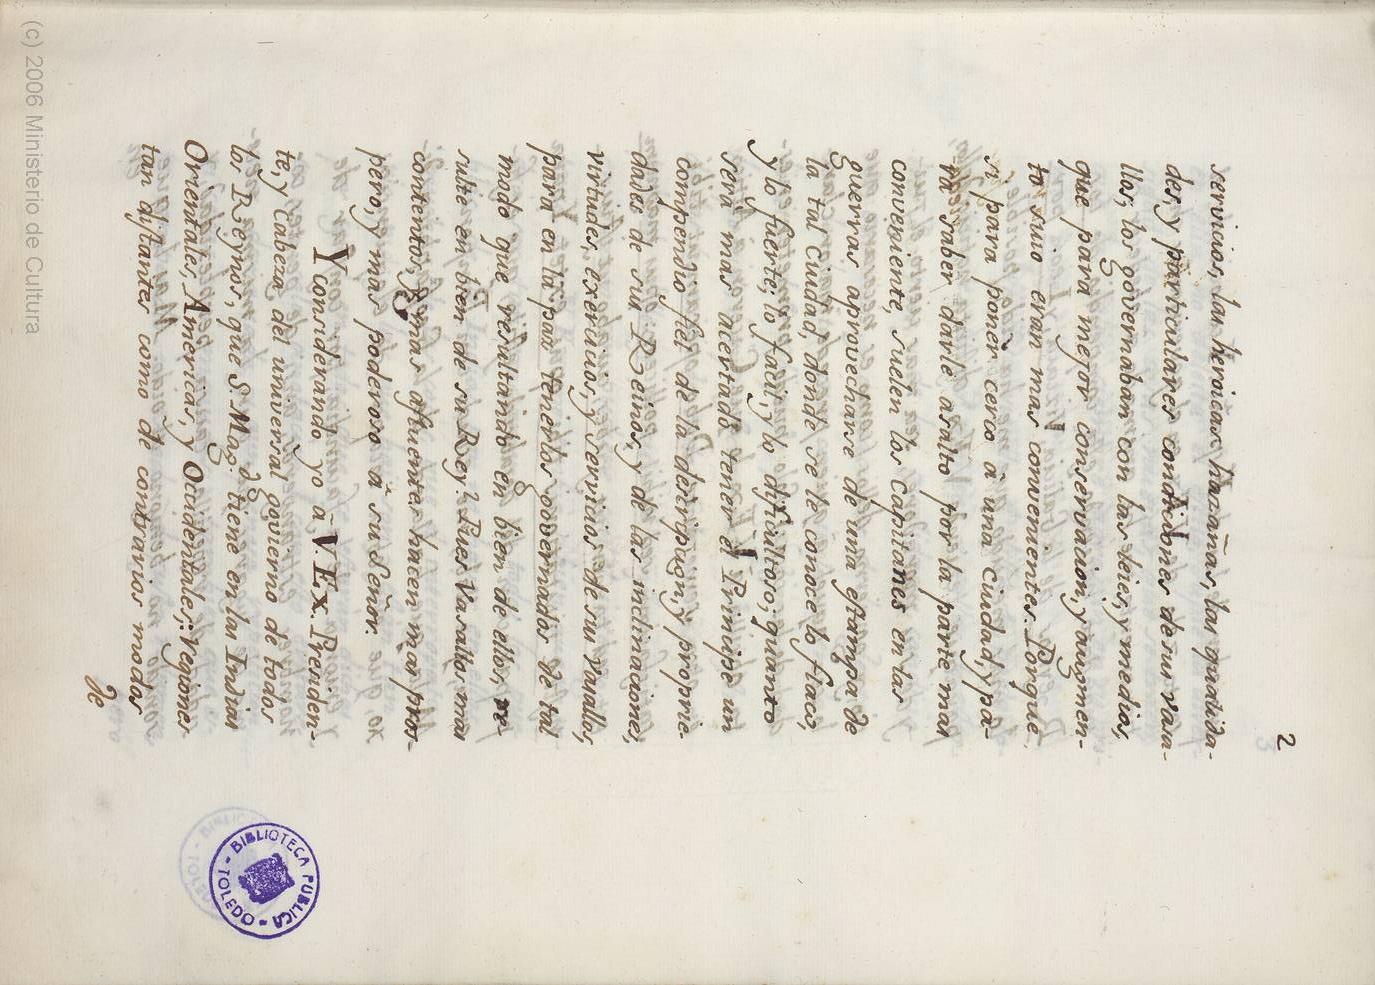 2
servicios, las heroicas hazañas, las quadida-
des, y particulares condiciones de sus vasa-
llos; los governaban con las leies, y medios,
que para mejor conservacion, y augmen-
to suio eran mas convenientes. Porque
si, para poner cerco à una ciudad, y pa-
ra saber darle asalto por la parte mas
conveniente, suelen los capitanes en las
guerras aprovecharse de una estampa de
la tal ciudad, donde se le conoce lo flaco,
y lo fuerte; lo facil, y lo dificultoso; quanto
serà mas acertado tener el Principe un
compendio fiel de la descripcion, y proprie-
dades de sus Reinos, y de las inclinaciones,
virtudes, exercicios, y servicios de sus vasallos,
para en la paz tenerlos governados de tal
modo que resultando en bien de ellos, re-
sulte en bien de su Rey? Pues Vasallos mas
contentos, y mas afluentes hacen mas pros-
pero, y mas poderoso à su Señor.
Y considerando yo à V. Ex. Presiden-
te, y Cabeza del universal govierno de todos
los Reynos, que S. Magd. tiene en las Indias
Orientales, Americas, y Occidentales; Regiones
tan distantes como de contrarios modos
de
BIBLIOTECA PUBLICA - TOLEDO -
(c) 2006 Ministerio de Cultura